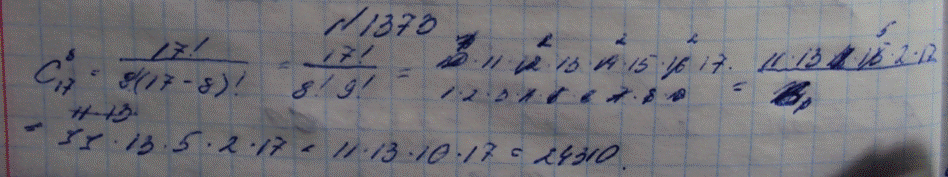 №1373
C₁₇⁸ = 17! / 8!(17-8)! = 17! / 8!9! = 10·11·12·13·14·15·16·17 / 1·2·3·4·5·6·7·8 = 11·13·15·2·17
= 11·13·5·2·17 = 11·13·10·17 = 24310.